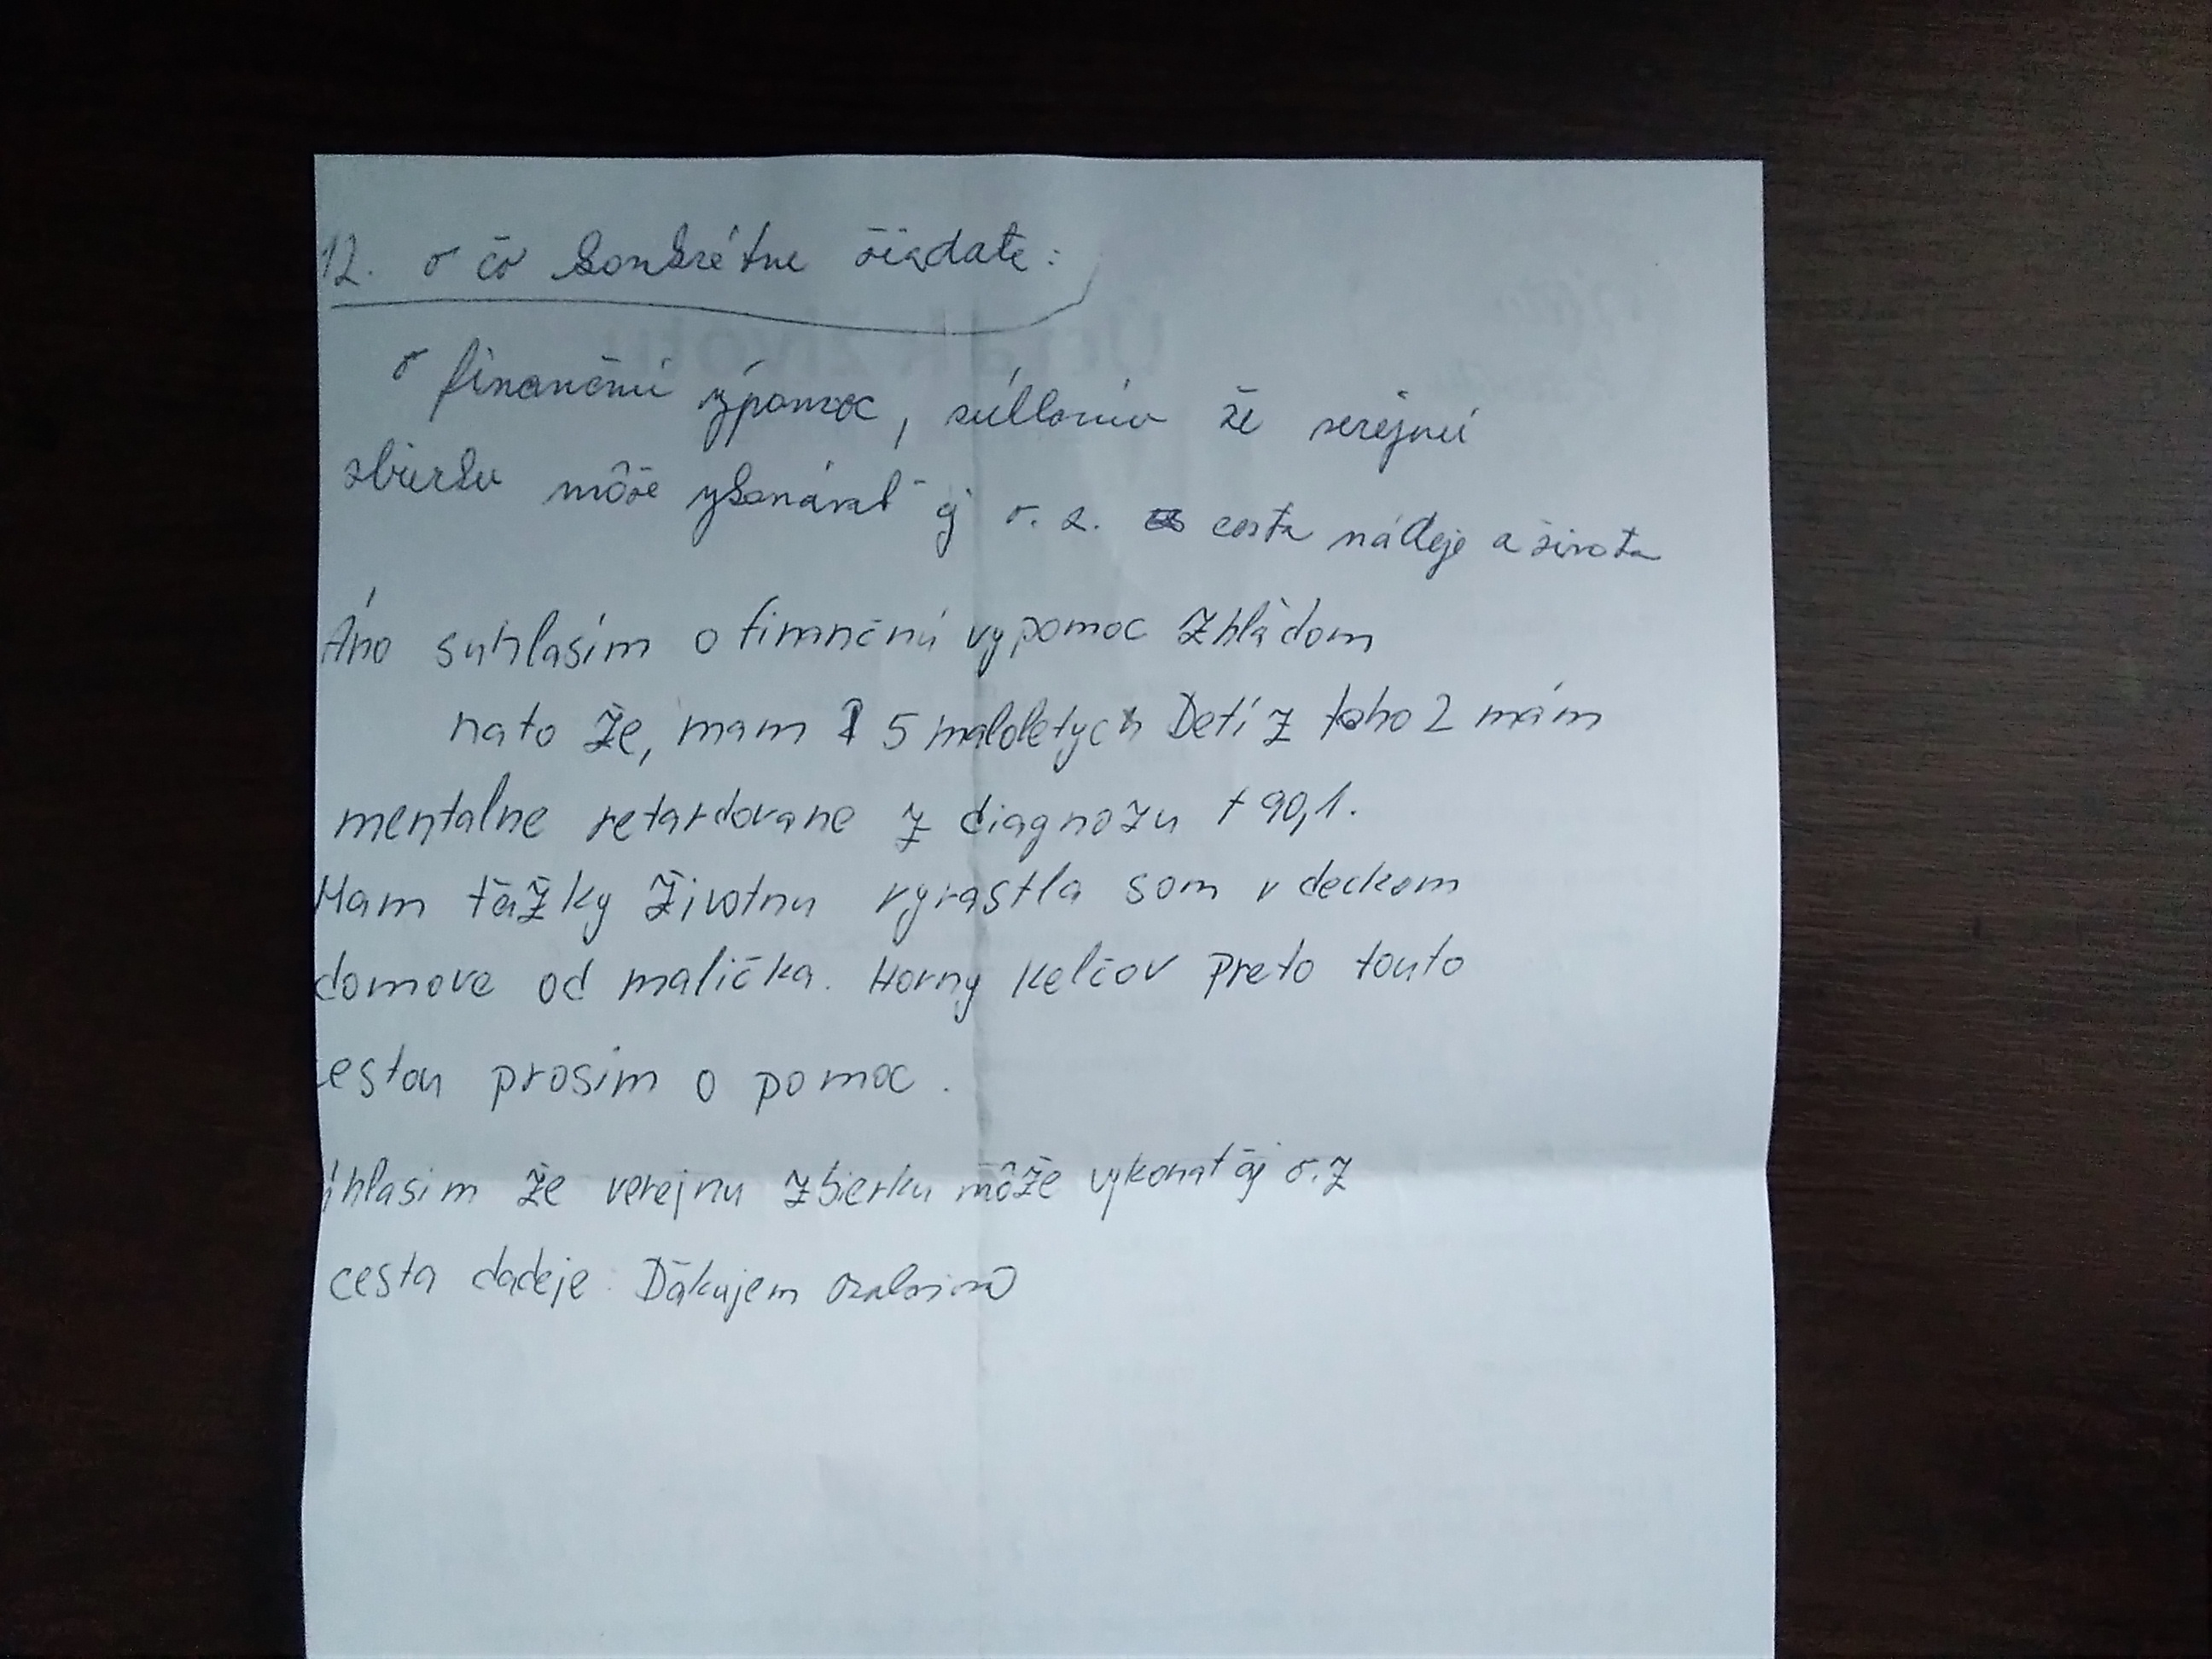 12. o čo konkrétne žiadate:
o finančnú výpomoc, súhlasím že verejnú
zbierku môže vykonávať aj o. z. cesta nádeje a života
Áno suhlasím o fimnčnú vypomoc Zhľadom
na to že, mam 5 maloletych Detí z toho 2 mám
mentalne retardovane z diagnozu f 90,1.
Mam ťažky životnu vyrastla som v deckom
domove od malička. Horny Kelčov Preto touto
cestou prosim o pomoc.
hlasim že verejnu zbierku môže vykonať aj o.z
cesta dadeje. Ďakujem